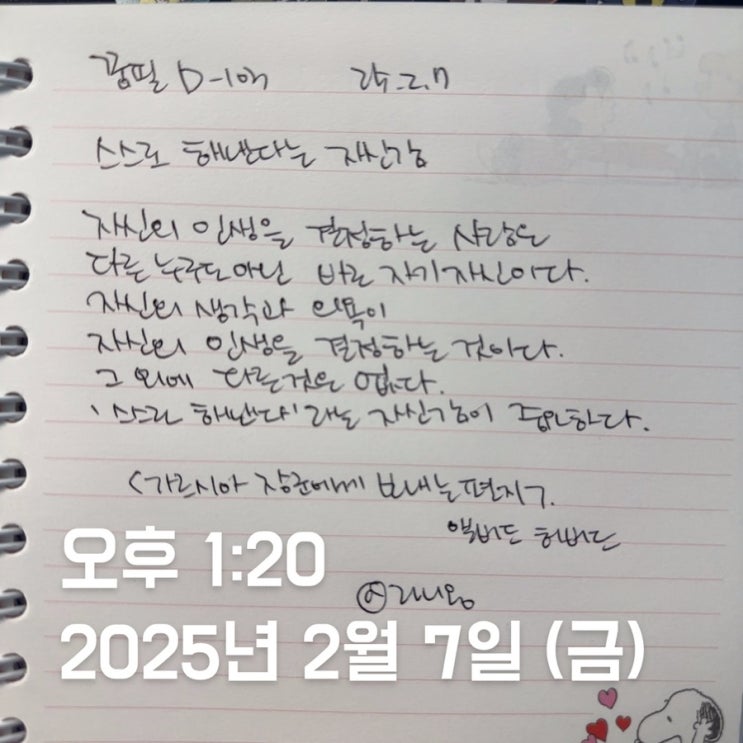 꿈필 D-1일 25.2.7
스스로 해낸다는 자신감
자신의 인생을 결정하는 사람은
다른 누구도 아닌 바로 자기자신이다.
자신의 생각과 의욕이
자신의 인생을 결정하는 것이다.
그 외에 다른것은 없다.
'스스로 해낸다'라는 자신감이 중요하다.
<가르시아 장군에게 보내는 편지>.
앨버트 허버드
오후 1:20
2025년 2월 7일 (금)